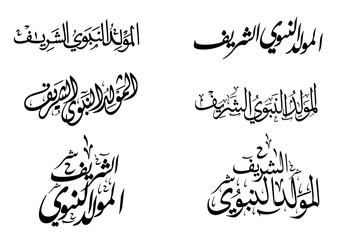 المولد النبوي الشريف
المولد النبوي الشريف
المولد النبوي الشريف
المولد النبوي الشريف
الشريف
المولد النبوي
الشريف
المولد النبوي